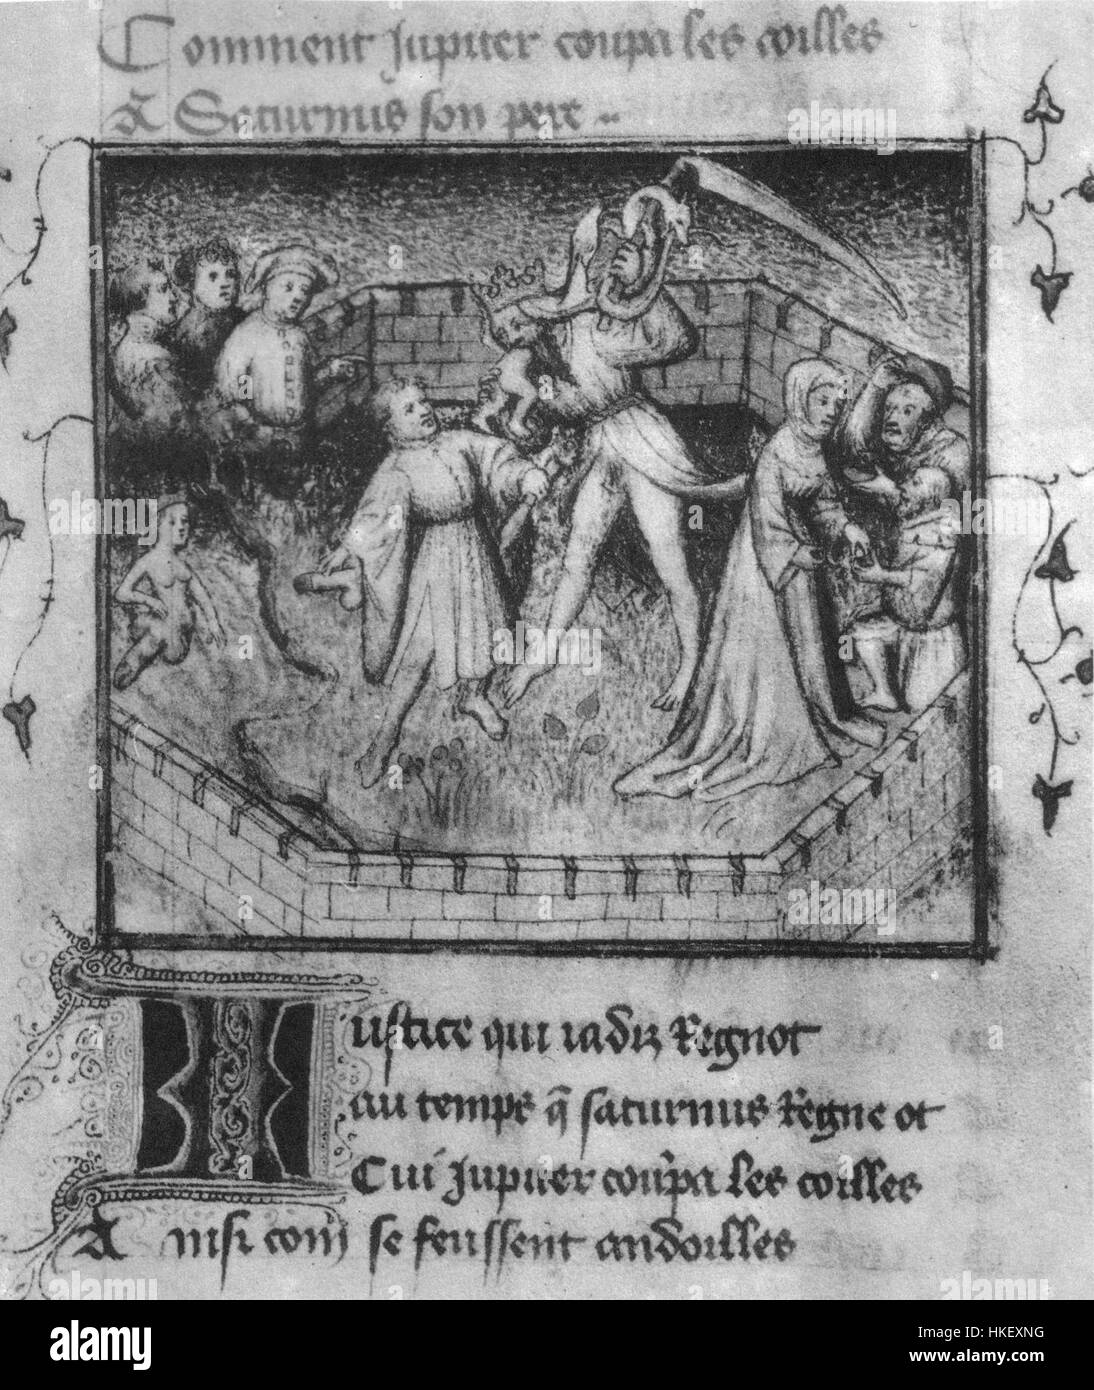 Comment Jupiter coupa les coilles
A Saturnus son pere
Iustice qui iadiz Regnot
au temps q̃ saturnus Regne ot
Cui Jupiter coup̃a les coilles
Ansi com̃ se feussent andoilles
alamy
Image ID: HKEXNG
www.alamy.com